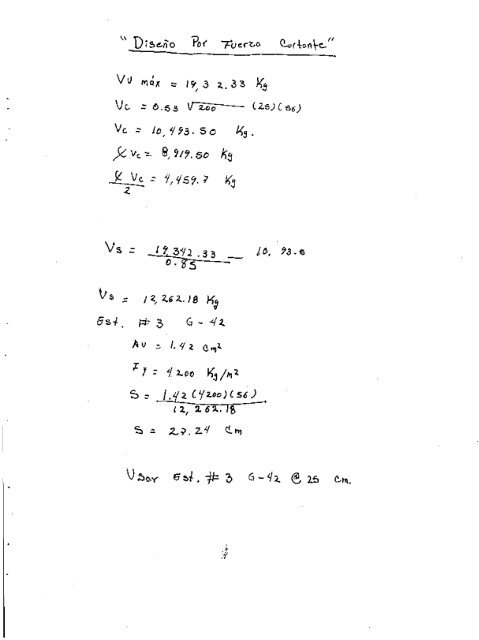 "Diseño Por Fuerza Cortante"
Vu máx = 19,3 2.33 Kg
Vc = 0.53 √200 (25)(56)
Vc = 10,493.50 Kg.
ɸVc = 8,919.50 Kg
ɸVc/2 = 4,459.7 Kg
Vs = 19,342.33/0.85 — 10, 93.5
Vs = 12,262.18 Kg
Est. #3 G-42
Av = 1.42 cm²
Fy = 4200 Kg/m²
S = 1.42(4200)(56)/12,262.18
S = 27.24 cm
Usar Est. #3 G-42 @ 25 cm.